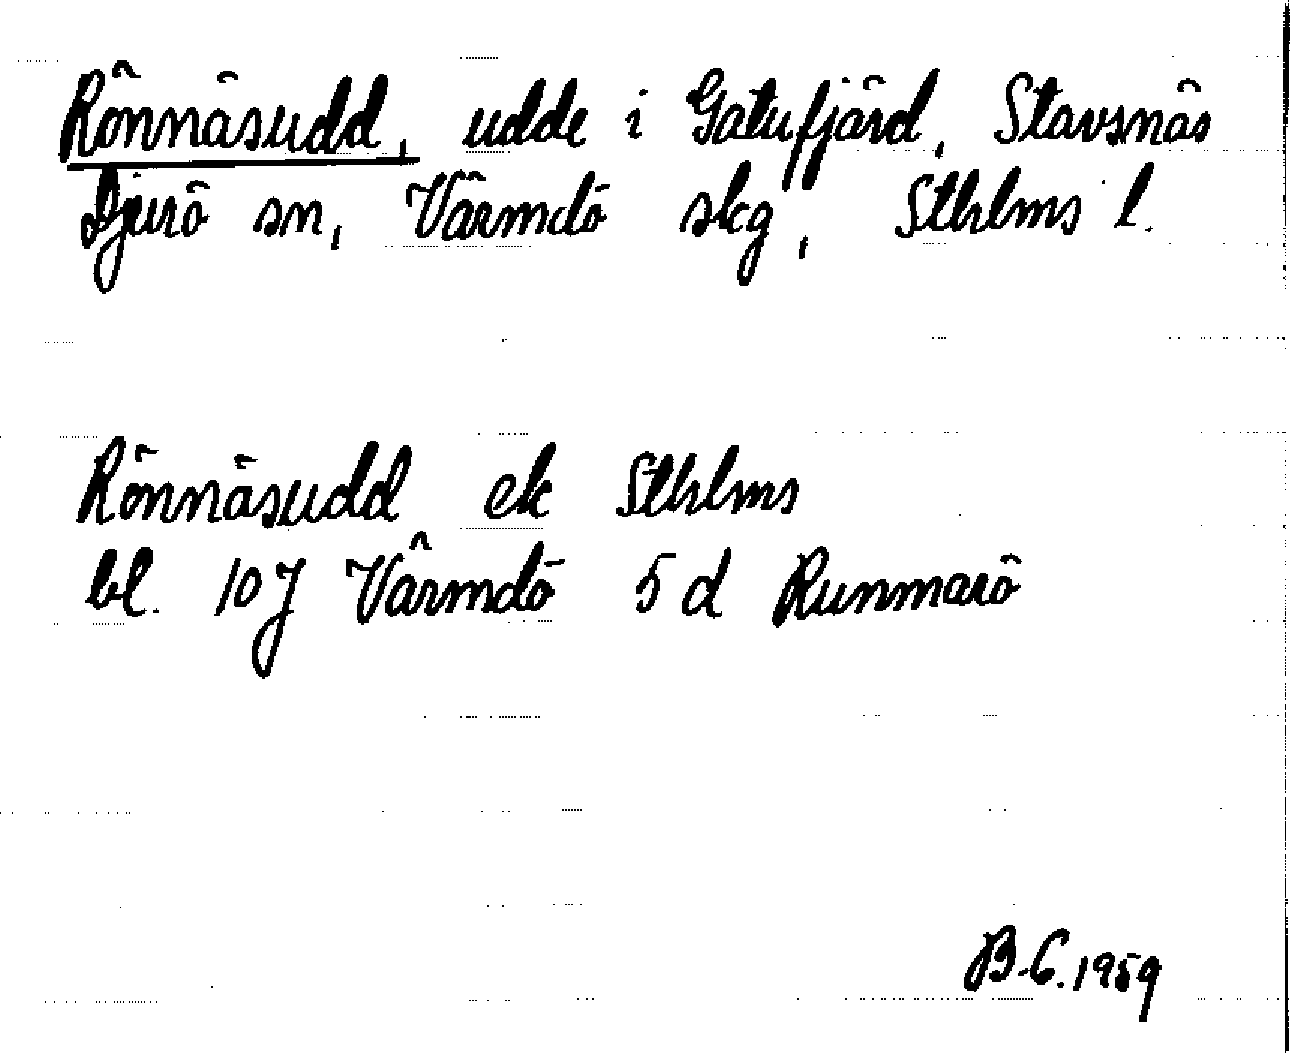 Rönnäsudd, udde i Gatufjärd, Stavsnäs
Djurö sn, Värmdö skg, Sthlms l.
Rönnäsudd ek Sthlms
bl. 107 Värmdö 5 d Runmarö
B.C. 1959